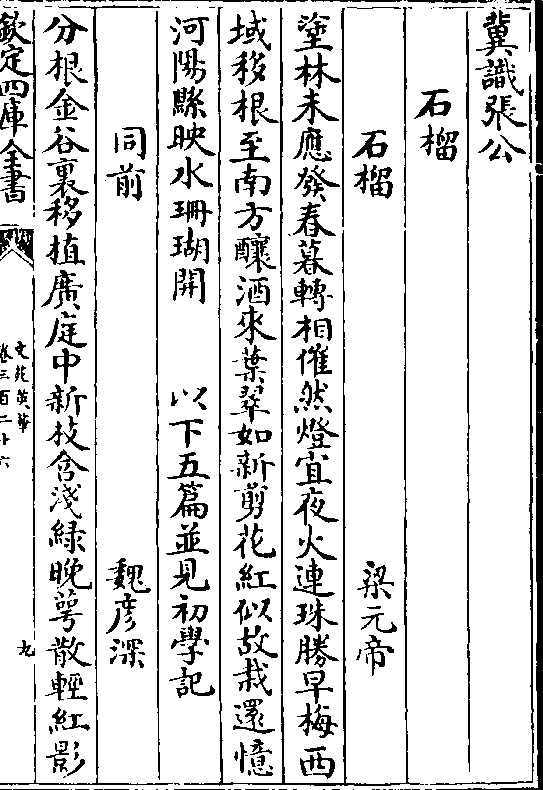 冀識張公
石榴
石榴 梁元帝
塗林未應發春暮轉相催然燈宜夜火連珠勝早梅西
域移根至南方釀酒來葉翠如新剪花紅似故栽還憶
河陽縣映水珊瑚開 以下五篇並見初學記
同前 魏彦深
分根金谷裏移植廣庭中新枝含淺緑晚萼散輕紅影
欽定四庫全書
文苑英華
卷三百二十六
九